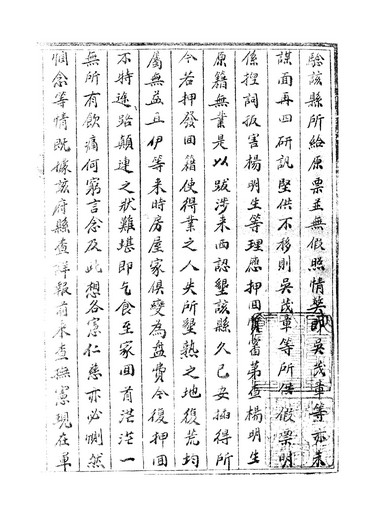 驗該縣所給原票並無假照情弊訊吳茂章等亦未
謀面再四研訊堅供不移則吳茂章等所供假票明
係捏詞扳害楊明生等理應押回質審第查楊明生
原籍無業是以跋涉來西認墾該縣久已安插得所
今若押發回籍使得業之人失所墾熟之地復荒均
屬無益且伊等來時房屋家俱變為盤費今復押回
不特進路顛連之狀難堪即乞食至家回首茫茫一
無所有飲痛何窮言念及此想各憲仁慈亦必惻然
憫念等情既據該府縣查詳報前來查撫憲現在單